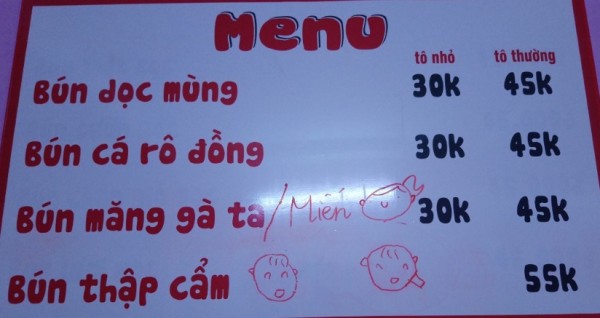 Menu
tô nhỏ tô thường
Bún dọc mùng 30k 45k
Bún cá rô đồng 30k 45k
Bún măng gà ta/Miến 30k 45k
Bún thập cẩm 55k